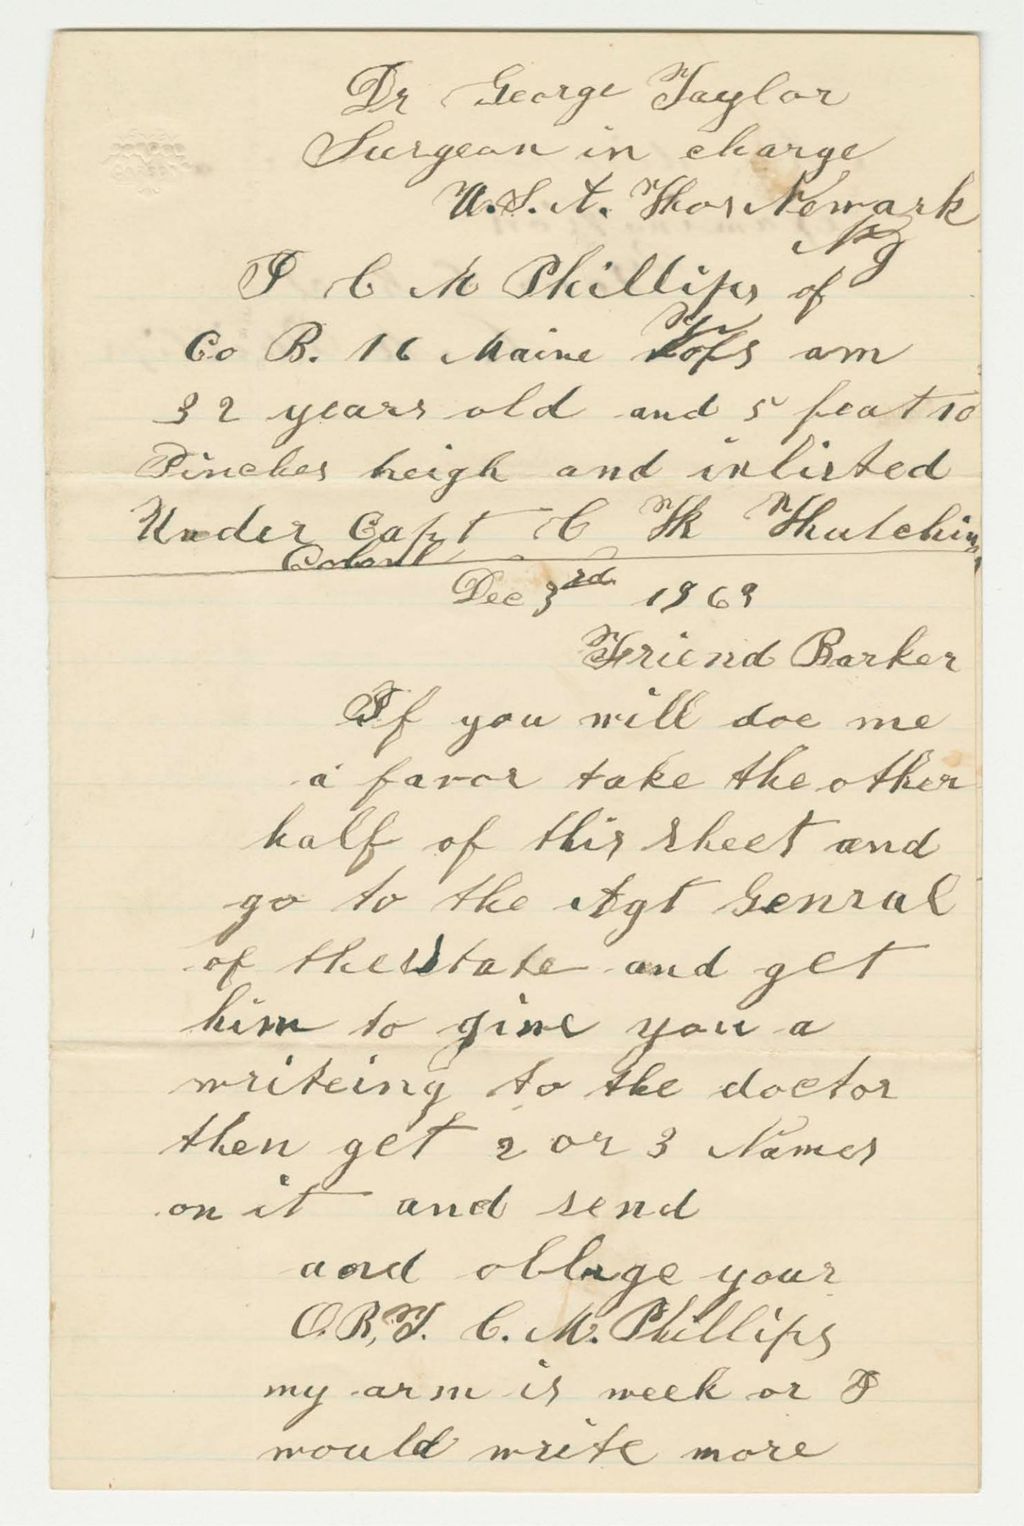 Dr George Taylor
Surgeon in charge
U.S.A. Hos Newark
NJ
I C M Phillips of
Co B. 16 Maine Vols am
32 years old and 5 feat 10
inches heigh and inlisted
Under Capt C K Hutchins
Colonl
Dec 3rd 1863
Friend Barker
If you will doe me
a favor take the other
half of this sheet and
go to the Agt Genral
of the state and get
him to give you a
writeing to the doctor
then get 2 or 3 Names
on it and send
and oblige your
O.B.F. C. M. Phillips
my arm is week or I
would write more